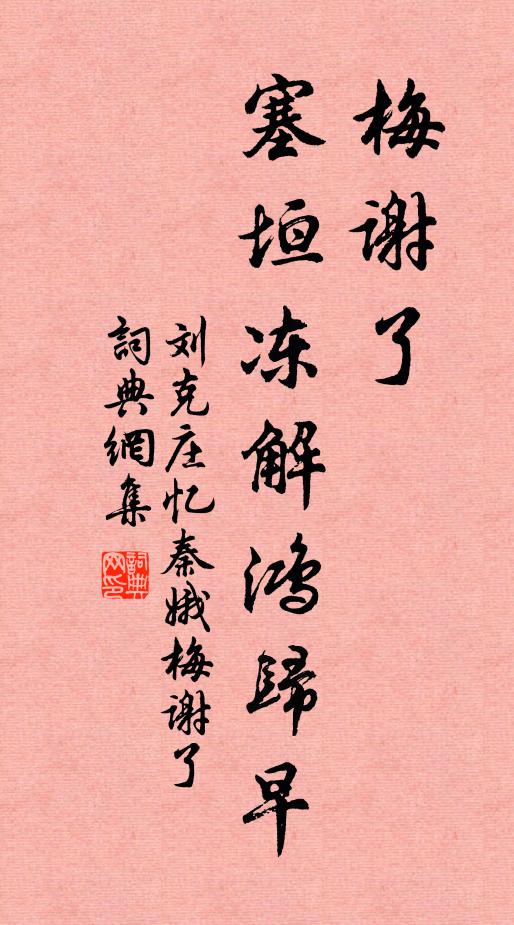 梅谢了
塞垣冻解鸿歸早
刘克庄忆秦娥梅谢了
詞典網集
詞典
网印